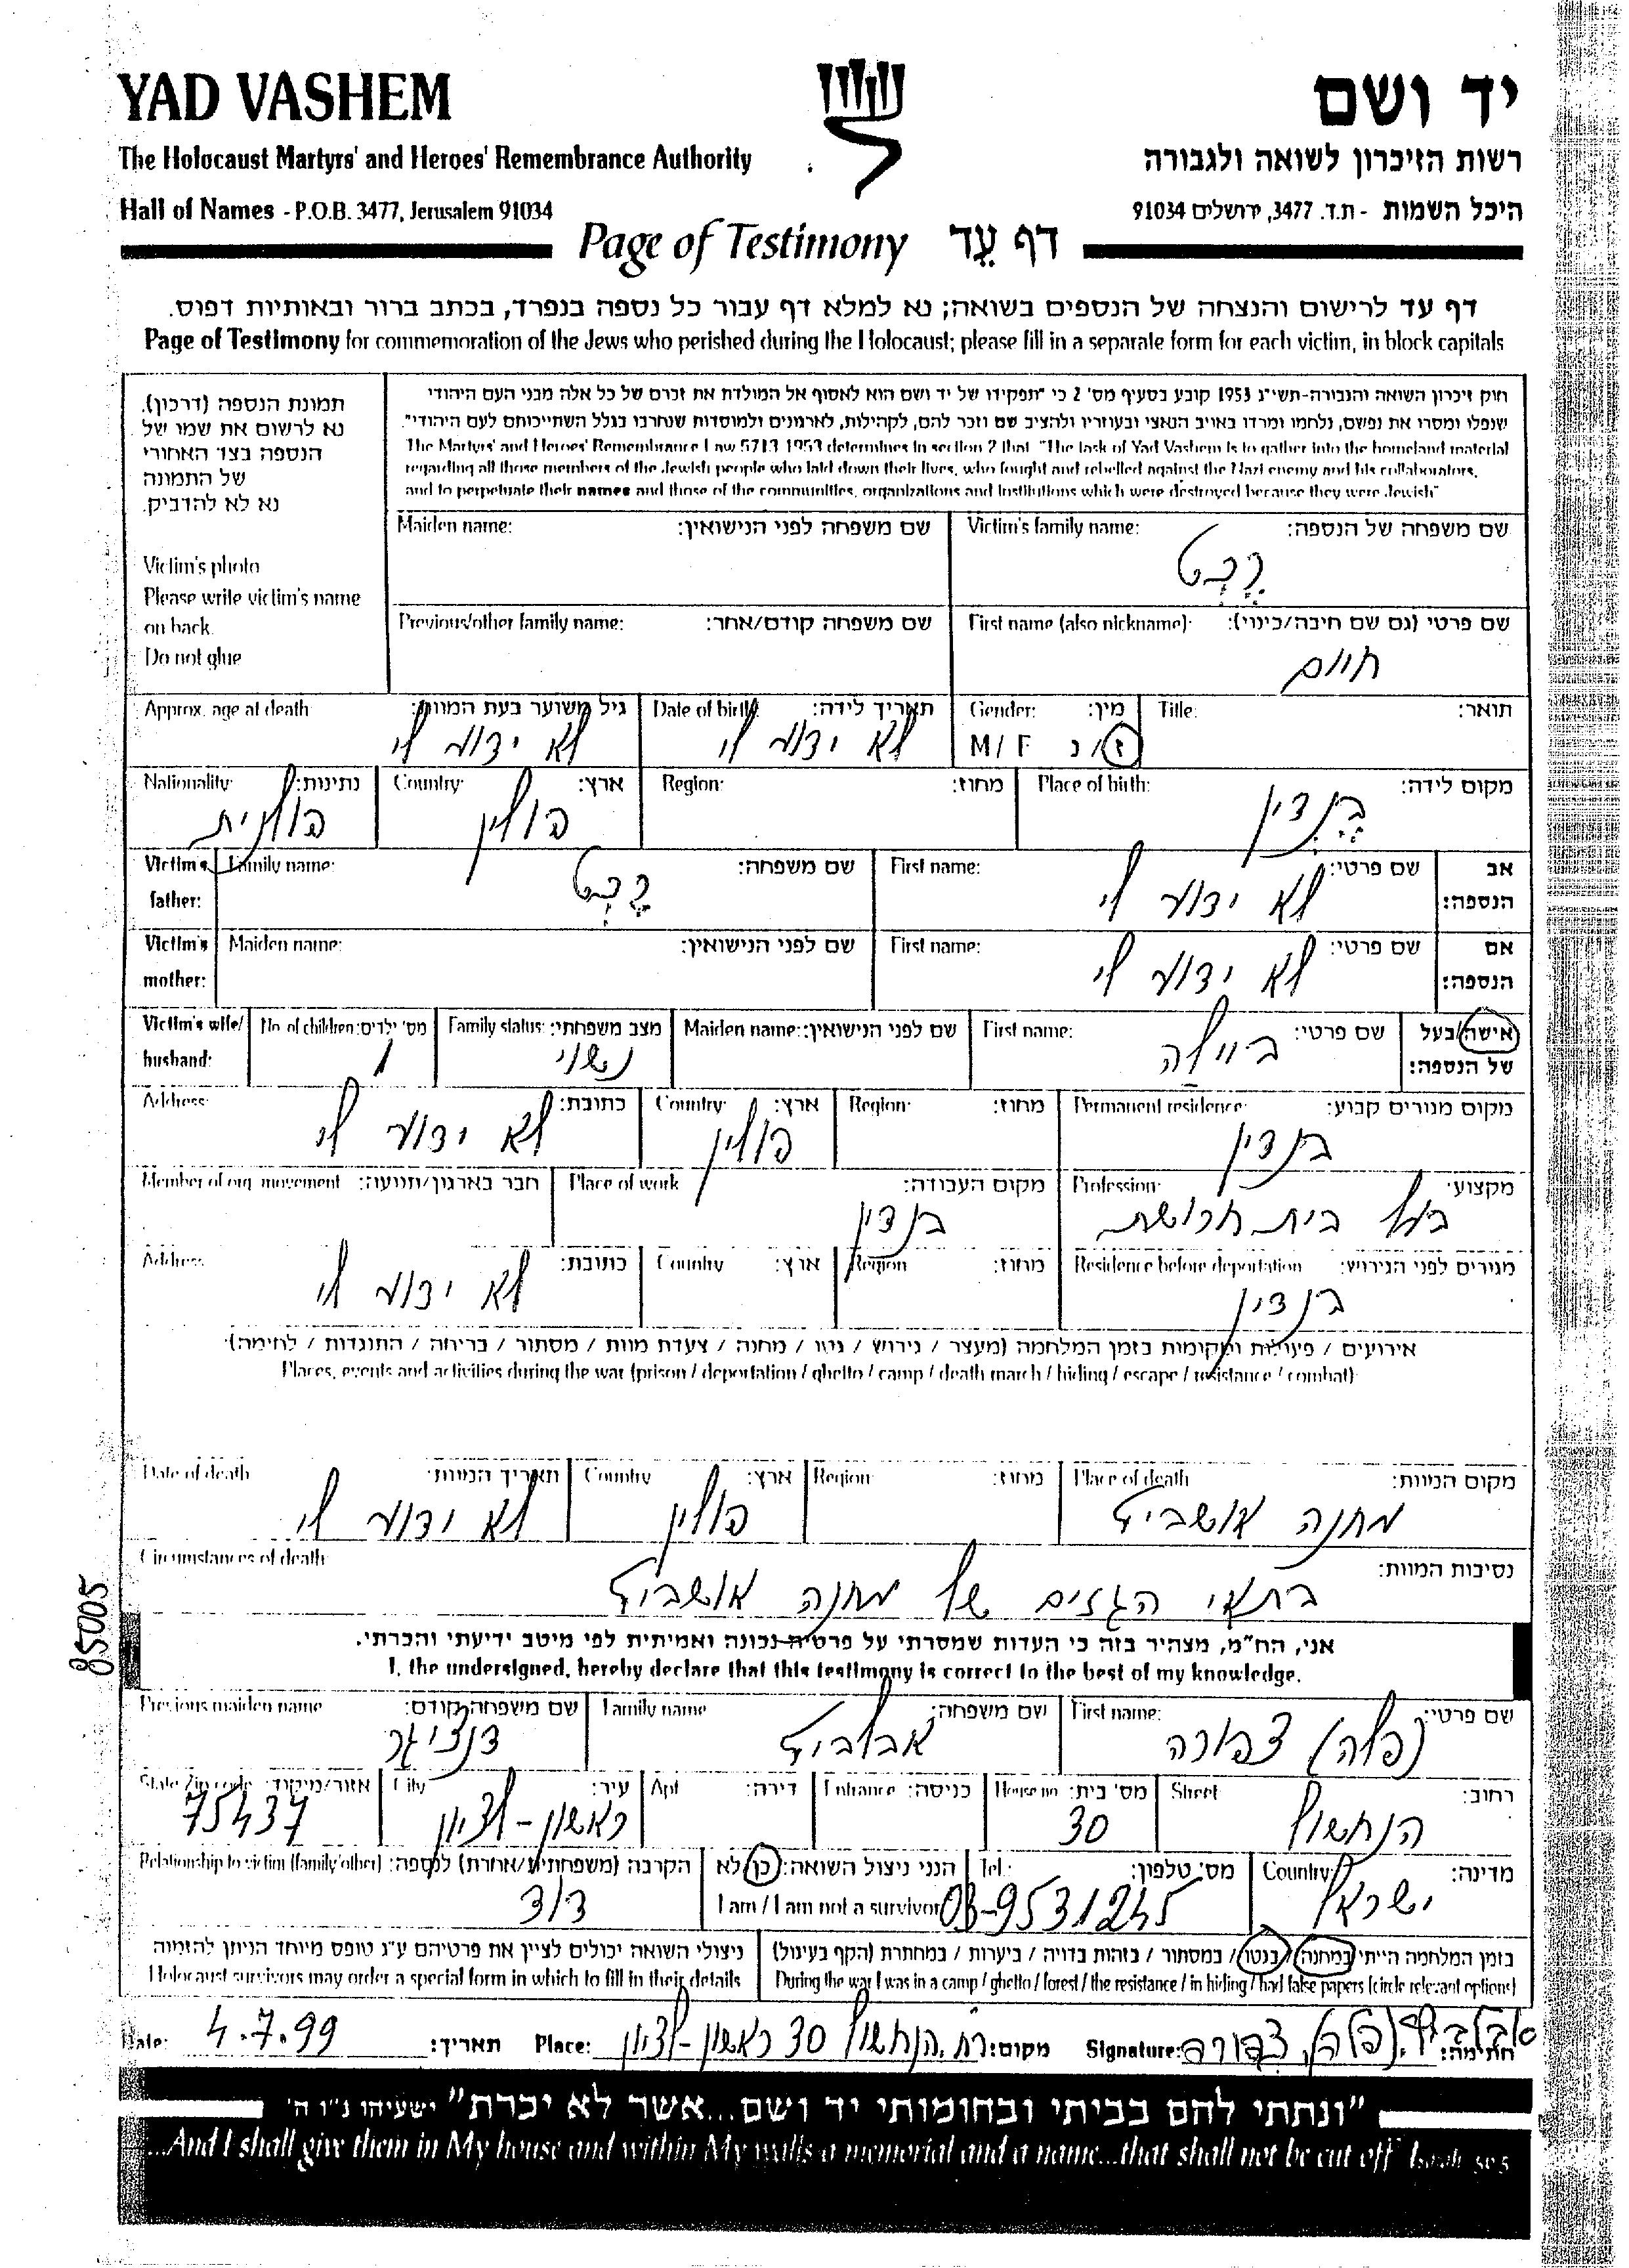 YAD VASHEM
יד ושם
The Holocaust Martyrs' and Heroes' Remembrance Authority
רשות הזיכרון לשואה ולגבורה
Hall of Names - P.O.B. 3477, Jerusalem 91034
היכל השמות - ת.ד. 3477, ירושלים 91034
Page of Testimony דף עֵד
דף עד לרישום והנצחה של הנספים בשואה; נא למלא דף עבור כל נספה בנפרד, בכתב ברור ובאותיות דפוס.
Page of Testimony for commemoration of the Jews who perished during the Holocaust; please fill in a separate form for each victim, in block capitals
תמונת הנספה (דרכון).
נא לרשום את שמו של
הנספה בצד האחורי
של התמונה
נא לא להדביק.
Victim's photo
Please write victim's name
on back.
Do not glue
חוק זיכרון השואה והגבורה-תשי"ג 1953 קובע בסעיף מס' 2 כי "תפקידו של יד ושם הוא לאסוף אל המולדת את זכרם של כל אלה מבני העם היהודי
שנפלו ומסרו את נפשם, נלחמו ומרדו באויב הנאצי ובעוזריו ולהציב שם וזכר להם, לקהילות, לארגונים ולמוסדות שנחרבו בגלל השתייכותם לעם היהודי".
The Martyrs' and Heroes' Remembrance Law 5713-1953 determines in section 2 that "The task of Yad Vashem is to gather into the homeland material
regarding all those members of the Jewish people who laid down their lives, who fought and rebelled against the Nazi enemy and his collaborators,
and to perpetuate their names and those of the communities, organizations and institutions which were destroyed because they were Jewish"
שם משפחה של הנספה: Victim's family name:
שם משפחה לפני הנישואין: Maiden name:
שם פרטי (גם שם חיבה/כינוי): First name (also nickname):
חיים
שם משפחה קודם/אחר: Previous/other family name:
תואר: Title:
מין: Gender:
ז/נ M/F
תאריך לידה: Date of birth:
לא ידוע לי
גיל משוער בעת המוות: Approx. age at death:
לא ידוע לי
מקום לידה: Place of birth:
בנדין
מחוז: Region:
ארץ: Country:
פולין
נתינות: Nationality:
פולנית
אב הנספה: Victim's father:
שם פרטי: First name:
לא ידוע לי
שם משפחה: Family name:
אם הנספה: Victim's mother:
שם פרטי: First name:
לא ידוע לי
שם לפני הנישואין: Maiden name:
אישה/בעל של הנספה: Victim's wife/husband:
שם פרטי: First name:
ביילה
שם לפני הנישואין: Maiden name:
מצב משפחתי: Family status:
נשוי
מס' ילדים: No. of children:
1
מקום מגורים קבוע: Permanent residence:
בנדין
מחוז: Region:
ארץ: Country:
פולין
כתובת: Address:
לא ידוע לי
מקצוע: Profession:
בעל בית חרושת
מקום העבודה: Place of work:
בנדין
חבר בארגון/תנועה: Member of org. movement
מגורים לפני הגירוש: Residence before deportation
בנדין
מחוז: Region
ארץ: Country
כתובת: Address
לא ידוע לי
אירועים / פעולות ומקומות בזמן המלחמה (מעצר / גירוש / גטו / מחנה / צעדת מוות / מסתור / בריחה / התנגדות / לחימה):
Places, events and activities during the war (prison / deportation / ghetto / camp / death march / hiding / escape / resistance / combat):
מקום המוות: Place of death
מחנה אושביץ
מחוז: Region
ארץ: Country
פולין
תאריך המוות: Date of death
לא ידוע לי
נסיבות המוות: Circumstances of death
בתאי הגזים של מחנה אושביץ
אני, הח"מ, מצהיר בזה כי העדות שמסרתי על פרטיה נכונה ואמיתית לפי מיטב ידיעתי והכרתי.
I, the undersigned, hereby declare that this testimony is correct to the best of my knowledge.
שם פרטי: First name:
(פלה) צפורה
שם משפחה: Family name
אבלביץ
שם משפחה קודם: Previous/maiden name
דנציגר
רחוב: Street
הנחשול
מס' בית: House no.
30
כניסה: Entrance
דירה: Apt
עיר: City
ראשון-לציון
אזור/מיקוד: State/Zip code
75437
מדינה: Country
ישראל
מס' טלפון: Tel.:
03-9531245
הנני ניצול השואה: כן/לא
I am / I am not a survivor
הקרבה (משפחתית/אחרת) לנספה: Relationship to victim (family/other)
דוד
בזמן המלחמה הייתי במחנה / בגטו / במסתור / בזהות בדויה / ביערות / במחתרת (הקף בעיגול)
During the war I was in a camp / ghetto / forest / the resistance / in hiding / had false papers (circle relevant option)
ניצולי השואה יכולים לציין את פרטיהם ע"ג טופס מיוחד הניתן להזמנה
Holocaust survivors may order a special form in which to fill in their details
חתימה: Signature: אבלביץ (פלה) צפורה
מקום: Place: רח. הנחשול 30 ראשון-לציון
תאריך: Date: 4.7.99
85005
"ונתתי להם בביתי ובחומותי יד ושם...אשר לא יכרת" ישעיהו נ"ו ה'
...And I shall give them in My house and within My walls a memorial and a name...that shall not be cut off" Isaiah 56:5